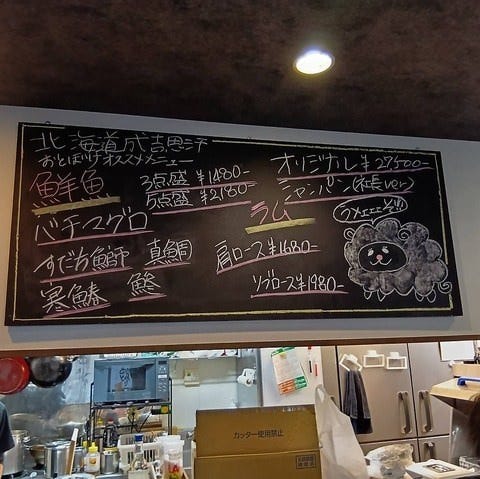 北海道成吉思汗
おとぼけオススメメニュー
鮮魚
3点盛 ¥1480-
5点盛 ¥2180-
バチマグロ
すだち魚師 真鯛
寒鰆 鯵
オリジナル ¥27500-
シャンパン(社長ver)
ラム
肩ロース ¥1680-
リブロース ¥1980-
ラメェェェぞ!!
カッター使用禁止